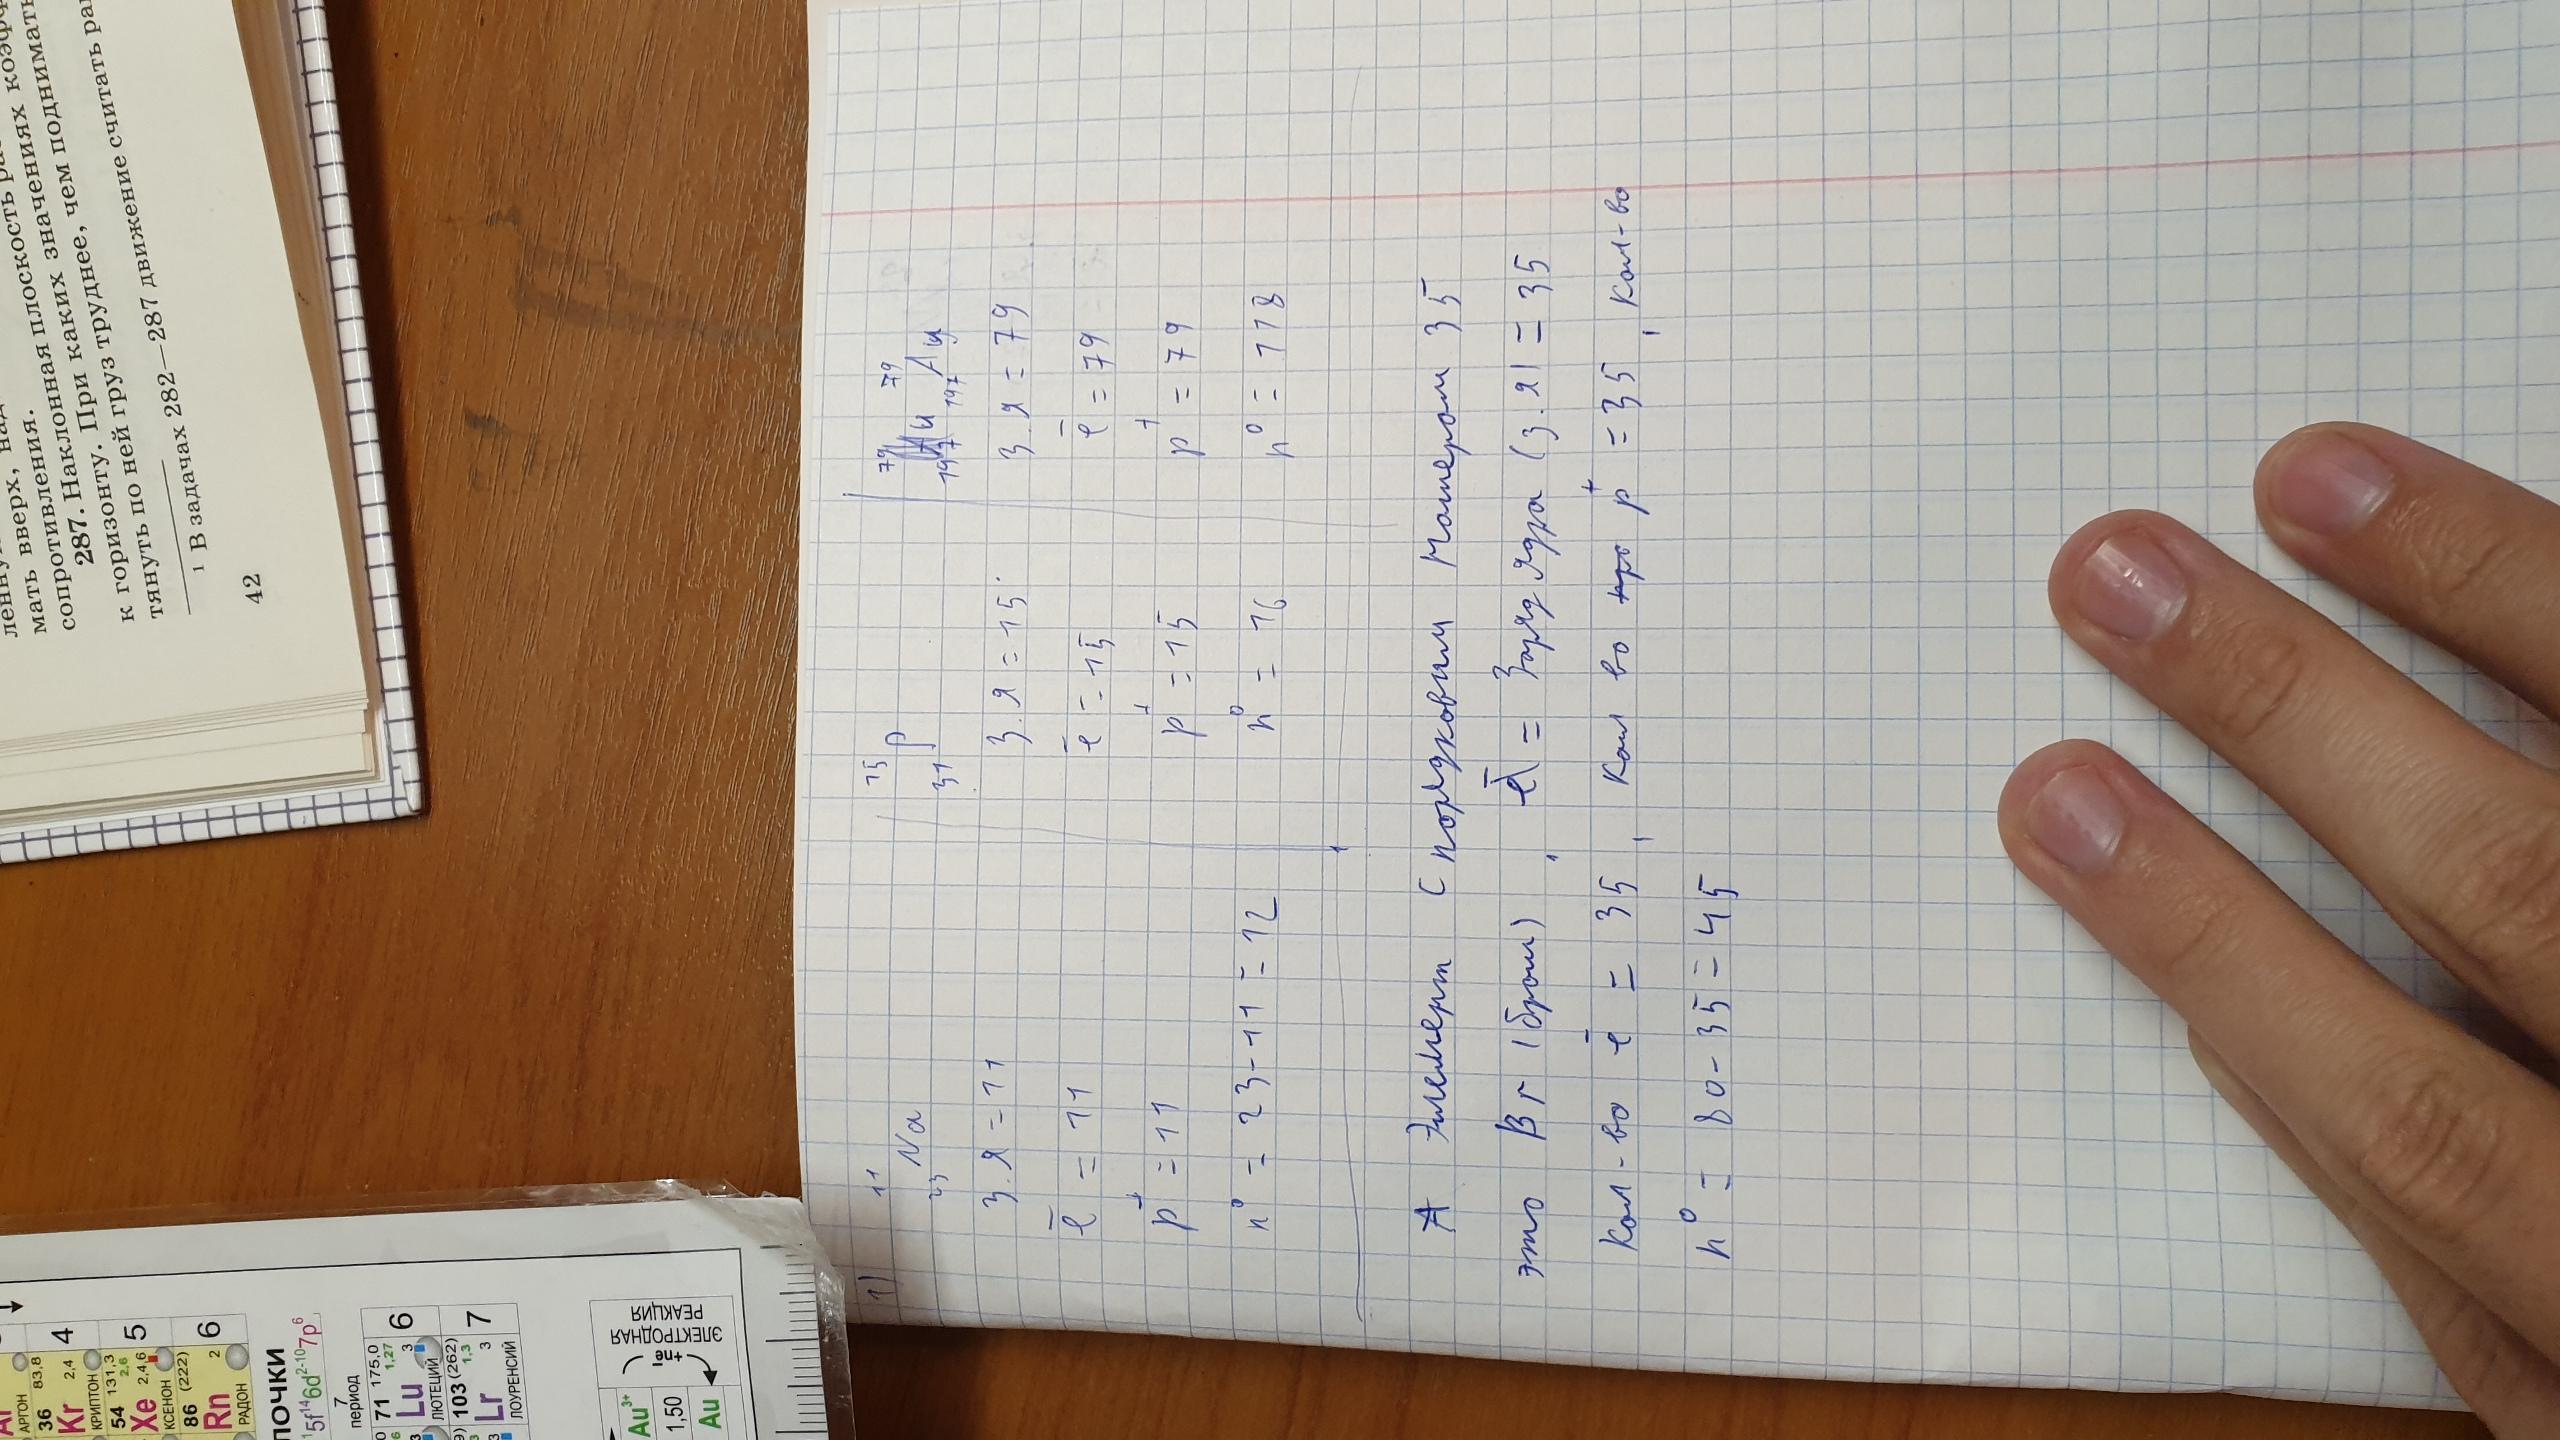 мать вверх, над
сопротивления.
287. Наклонная плоскость
значениях
к горизонту. При каких значем поднимать
тянуть по ней груз труднее, чем
¹ В задачах 282—287 движение считать
42
1)
11
23 Na
з.я = 11
e⁻ = 11
p⁺ = 11
n⁰ = 23-11 = 12
15
31 P
з.я = 15
e⁻ = 15
p⁺ = 15
n⁰ = 16
79
197
79
197 Au
з.я = 79
e⁻ = 79
p⁺ = 79
n⁰ = 118
A Элемент с порядковым намером 35
это Br (бром), e⁻ = Заряд ядра (з.я) = 35
кол-во e⁻ = 35, кол во про p⁺ = 35, кол-во
n⁰ = 80-35=45
АРГОН
36 83,8
Kr 2,4
КРИПТОН
4
54 131,3
2,6
Xe 2,4,6
КСЕНОН
5
86 (222)
Rn 2
РАДОН
6
ПОЧКИ
5f¹⁴6d²⁻¹⁰7p⁶
7
период
71 175,0
1,27
Lu 3
ЛЮТЕЦИЙ
6
103 (262)
1,3
Lr 3
ЛОУРЕНСИЙ
7
ЭЛЕКТРОДНАЯ
РЕАКЦИЯ
+nē
Au³⁺
1,50
Au